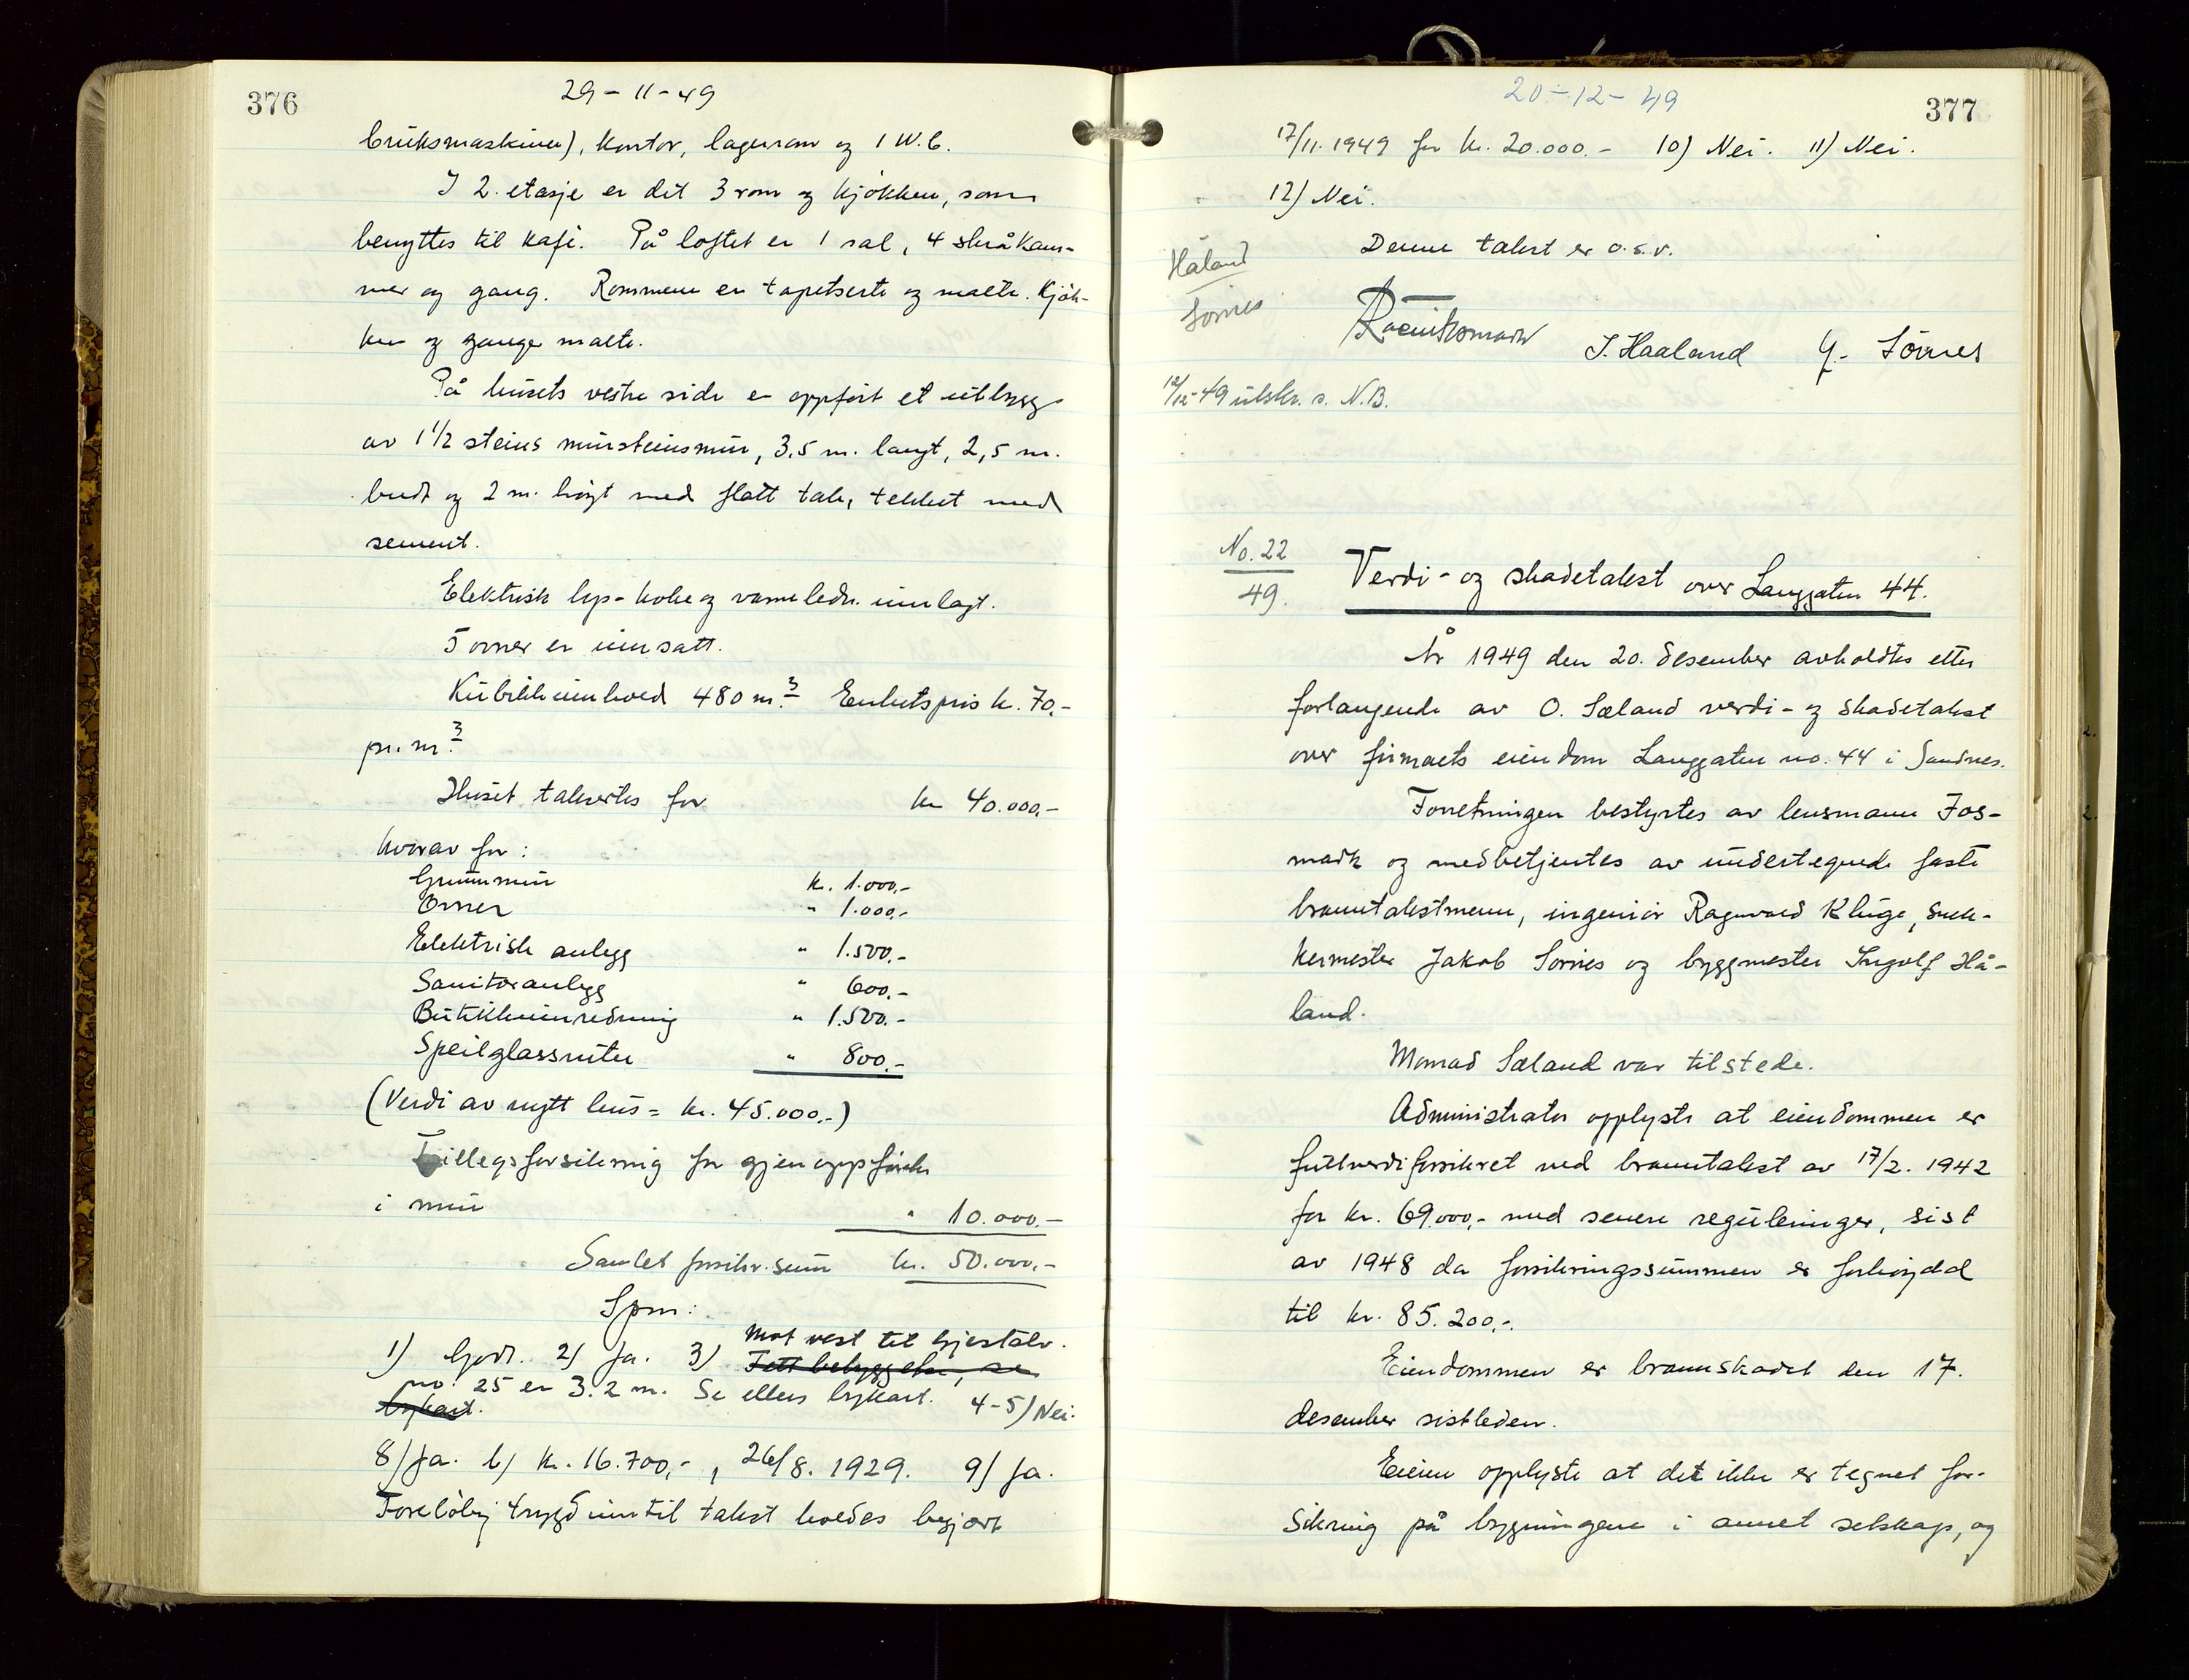 376
29-11-49
bruksmaskiner), kontor, lagerrom og 1 W.C.
I 2. etasje er det 3 rom og kjökken, som
benyttes til kafé. På loftet er 1 sal, 4 skråkam-
mer og gang. Rommene er tapetserte og malte. Kjök-
ken og ganger malte.
På husets vestre side er oppfört et utbygg
av 1 1/2 steins mursteinsmur, 3,5 m. langt, 2,5 m.
bredt og 2 m. högt med flatt tak, tekket med
sement.
Elektrisk lys- koke og varmeledn. innlagt.
5 ovner er innsatt.
Kubikkinnhold 480 m3. Enhetspris kr. 70,-
pr. m3.
Huset takseres for kr 40.000,-
hvorav for:
Grunnmur kr. 1.000,-
Ovner " 1.000,-
Elektrisk anlegg " 1.500,-
Sanitæranlegg " 600,-
Butikkinnredning " 1.500,-
Speilglassruter " 800,-
(Verdi av nytt hus = kr. 45.000,-)
Tilleggsforsikring for gjenoppförelse
i mur " 10.000,-
Samlet forsikr.sum kr. 50.000,-
Spm:
mot vest til hjestalv.
1) Godt. 2) Ja. 3) Tett bebyggelse, se
no. 25 er 3.2 m. Se ellers bykart. 4-5) Nei.
bykart.
8) Ja. b) kr. 16.700,-, 26/8. 1929. 9) Ja.
Forelöbig trygd inntil takst holdes begjært
20-12-49
377
17/11. 1949 for kr. 20.000.- 10) Nei. 11) Nei.
12) Nei.
Denne takst er o.s.v.
Håland
Sörnes
I. Haaland J. Sörnes
12/12-49 utskr. s. N.B.
No. 22
49.
Verdi- og skadetakst over Langgaten 44.
År 1949 den 20. desember avholdtes etter
forlangende av O. Sæland verdi- og skadetakst
over firmaets eiendom Langgaten no. 44 i Sandnes.
Forretningen bestyrtes av lensmann Fos-
mark og medbetjentes av undertegnede faste
branntakstmenn, ingeniör Ragnvald Kluge, snek-
kermester Jakob Sörnes og byggmester Ingolf Hå-
land.
Monrad Sæland var tilstede.
Administrator opplyste at eiendommen er
fullverdiforsikret ved branntakst av 17/2. 1942
for kr. 69.000,- med senere reguleringer, sist
av 1948 da forsikringssummen er forhöydd
til kr. 85.200,-.
Eiendommen er brannskadet den 17.
desember sistleden.
Eieren opplyste at det ikke er tegnet for-
sikring på bygningene i annet selskap, og